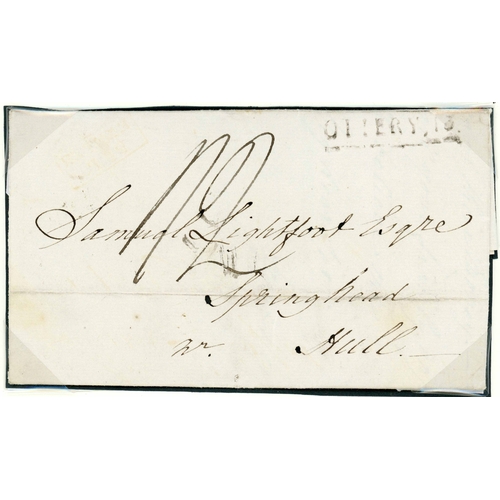 OTTERY,
1/2
Samual Lightfoot Esqre
Springhead
nr. Hull.